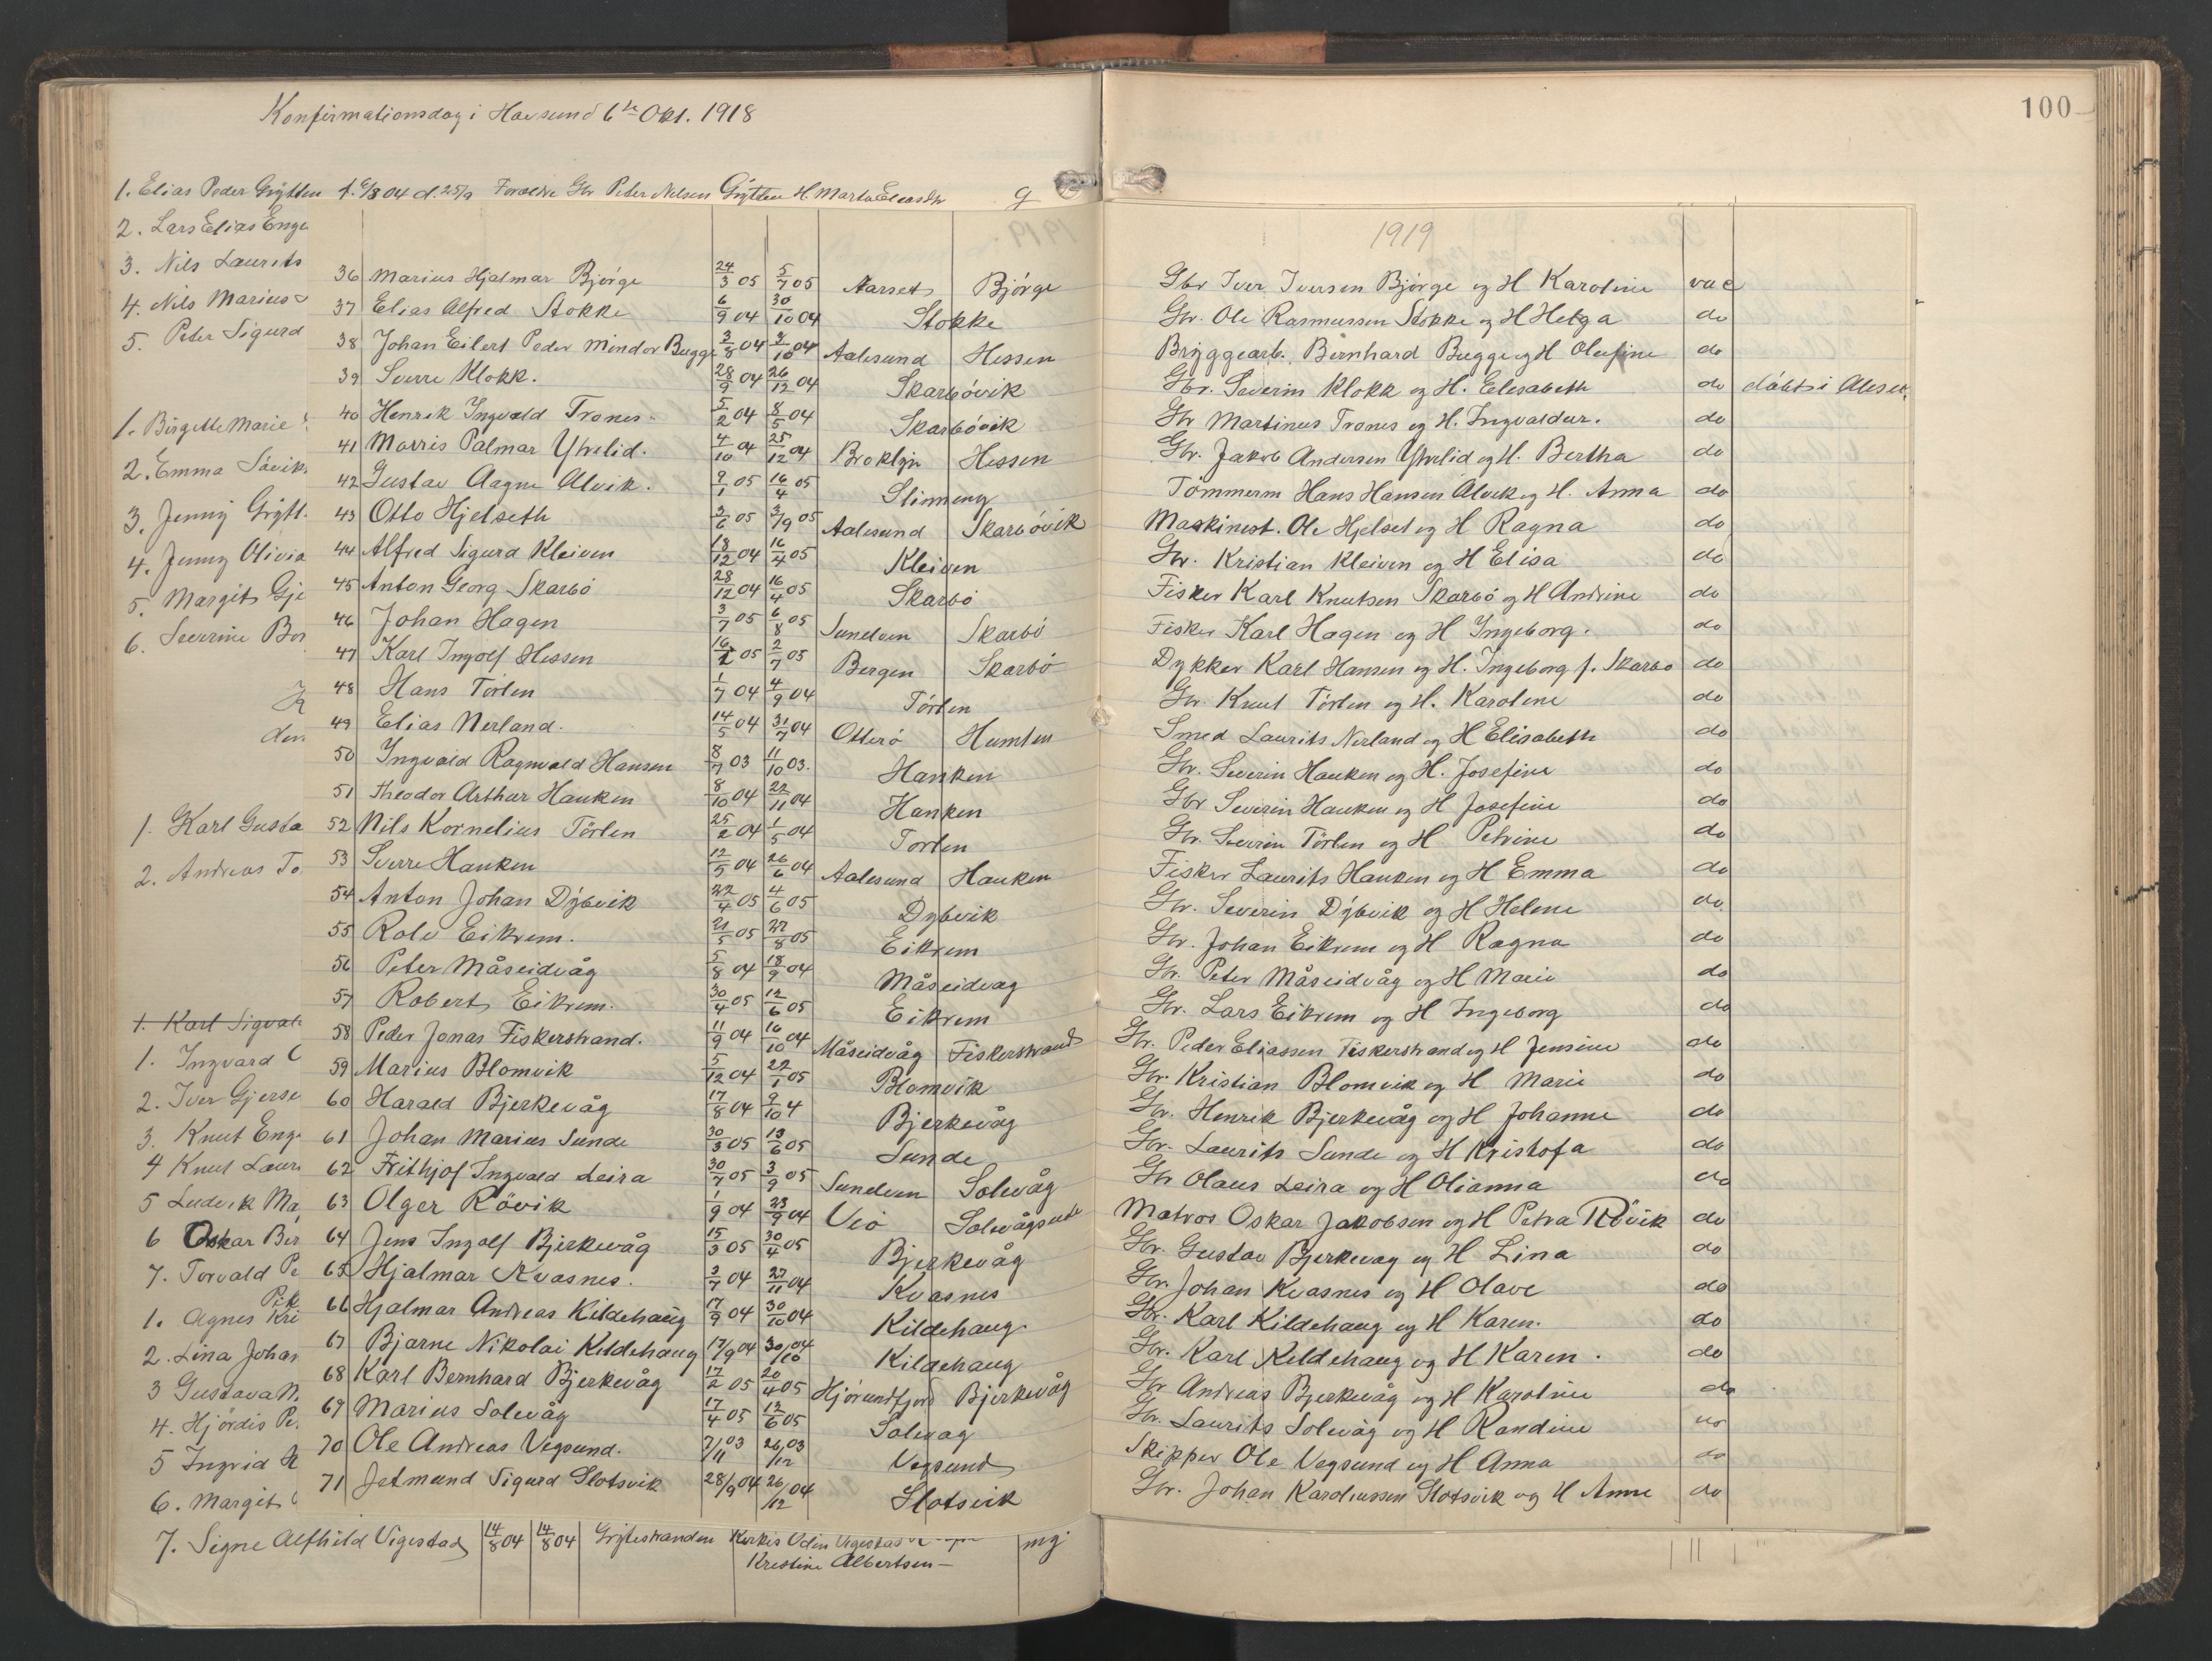 100
Konfirmationsdag i Havsund 6te Okt. 1918
1. Elias Peder Grytten f. 6/8 04 d. 25/9 Forældre Gbr Peder Nelsen Grytten H. Marta Eliasdtr g
2. Lars Elias Enge
3. Nils Laurits
4. Nils Marius
5. Peter Sigurd
1. Birgitte Marie
2. Emma Søvik
3. Jenny Grytt
4. Jenny Olivia
5. Margit Gje
6. Severine Bor
den
1. Karl Gusta
2. Andreas To
1. Karl Sigvald
1. Ingvard
2. Iver Gjerse
3. Knut Enge
4 Knut Laur
5 Ludvik Ma
6 Oskar Ber
7. Torvald Pe
Pik
1. Agnes Kri
2. Lina Johan
3 Gustava M
4. Hjördis Pe
5 Ingrid H
6. Margit
7. Signe Alfhild Vigestad 14/8 04 14/8 04 Grytestranden Kirkes Odin Vigestad mg
Kristine Albertsen
1919
36 Marius Hjalmar Bjørge 24/3 05 5/7 05 Aarset Bjørge Gbr Iver Iversen Bjørge og H Karoline vac
37 Elias Alfred Stokke 6/9 04 30/10 04 Stokke Gbr. Ole Rasmussen Stokke og H Helga do
38 Johan Eilert Peder Mindor Bugge 3/8 04 3/10 04 Aalesund Hessen Bryggearb. Bernhard Bugge og H Olufine do
39 Sverre Klokk. 28/9 04 26/12 04 Skarbøvik Gbr. Severin Klokk og H. Elesabeth do døbt i Alesu.
40 Henrik Ingvald Trones 5/2 04 8/5 04 Skarbøvik Gbr Martinus Trones og H. Ingvaldur. do
41 Morris Palmar Yhrelid. 4/10 04 25/12 04 Broklyn Hessen Gbr. Jakob Andersen Yhrelid og H. Bertha do
42 Gustav Aagne Alvik. 9/1 05 16/4 05 Slinneng Tømmerm Hans Hansen Alvik og H. Anna do
43 Otto Hjelseth 3/6 05 3/9 05 Aalesund Skarbøvik Maskinest. Ole Hjelset og H Ragna do
44 Alfred Sigurd Kleiven 18/12 04 16/4 05 Kleiven Gbr. Kristian Kleiven og H Elisa do
45 Anton Georg Skarbø 28/12 04 16/4 05 Skarbø Fisker Karl Knutsen Skarbø og H Andrine do
46 Johan Hagen 3/7 05 6/8 05 Sundven Skarbø Fisker Karl Hagen og H Ingeborg. do
47 Karl Ingolf Hessen 16/2 05 2/7 05 Bergen Skarbø Dykker Karl Hansen og H. Ingeborg f. Skarbø do
48 Hans Tørlen 1/7 04 4/9 04 Tørlen Gbr. Knut Tørlen og H. Karolene do
49 Elias Nerland. 14/5 04 31/7 04 Otterö Humlen Smed Laurits Nerland og H Elisabeth do
50 Ingvald Ragnvald Hansen 8/7 03 11/10 03. Hauken Gbr. Severin Hauken og H. Josefine do
51 Theodor Arthur Hauken 8/10 04 22/11 04 Hauken Gbr Severin Hauken og H Josefine do
52 Nils Kornelius Törlen 25/2 04 1/5 04 Torlen Gbr. Severin Törlen og H Petrine do
53 Sverre Hauken 12/5 04 26/6 04 Aalesund Hauken Fisker Laurits Hauken og H Emma do
54 Anton Johan Dybvik 22/4 05 4/6 05 Dybvik Gbr. Severin Dybvik og H Helene do
55 Rolv Eikrem. 21/5 05 27/8 05 Eikrem Gbr. Johan Eikrem og H Ragna do
56 Peter Måseidvåg 5/8 04 18/9 04 Måseidvag Gbr. Peter Måseidvåg og H Marie do
57 Robert Eikrem. 30/4 05 12/6 05 Eikrem Gbr. Lars Eikrem og H Ingeborg do
58 Peder Jonas Fiskerstrand. 11/9 04 16/10 04 Måseidvåg Fiskerstrand Gbr. Peder Eliassen Fiskerstrand og H Jensine do
59 Marius Blomvik 5/12 04 22/1 05 Blomvik Gbr. Kristian Blomvik og H Marie do
60 Harald Bjerkevåg 17/8 04 9/10 4 Bjerkevåg Gbr. Henrik Bjerkevåg og H Johanne do
61 Johan Marius Sunde 30/3 05 13/6 05 Sunde Gbr. Laurits Sunde og H Kristofa do
62 Frithjof Ingvald Leira 30/7 05 3/9 05 Sundven Solevåg Gbr Olaus Leira og H Olianna do
63 Olger Rövik 1/9 04 23/9 04 Veö Solevågseide Matros Oskar Jakobsen og H Petra Rövik do
64 Jens Ingolf Bjerkevåg 15/3 05 30/4 05 Bjerkevåg Gbr. Gustav Bjerkevag og H Lina do
65 Hjalmar Kvasnes. 3/7 04 27/11 04 Kvasnes Gbr. Johan Kvasnes og H Olave do
66 Hjalmar Andreas Kildehaug 17/9 04 30/10 04 Kildehaug Gbr. Karl Kildehaug og H Karen. do
67 Bjarne Nikolai Kildehaug 17/9 04 30/10 04 Kildehaug Gbr. Karl Kildehaug og H Karen. do
68 Karl Bernhard Bjerkevåg 17/2 05 20/4 05 Hjørundfjord Bjerkevåg Gbr Andreas Bjerkevåg og H Karoline do
69 Marius Solevåg 17/4 05 12/6 05 Solevag Gbr. Laurits Solevåg og H Randine do
70 Ole Andreas Vegsund. 7/11 03 26/12 03 Vegsund Skipper Ole Vegsund og H Anna do
71 Jetmund Sigurd Slotsvik 28/9 04 26/12 04 Slotsvik Gbr. Johan Karoliussen Slotsvik og H Anne do